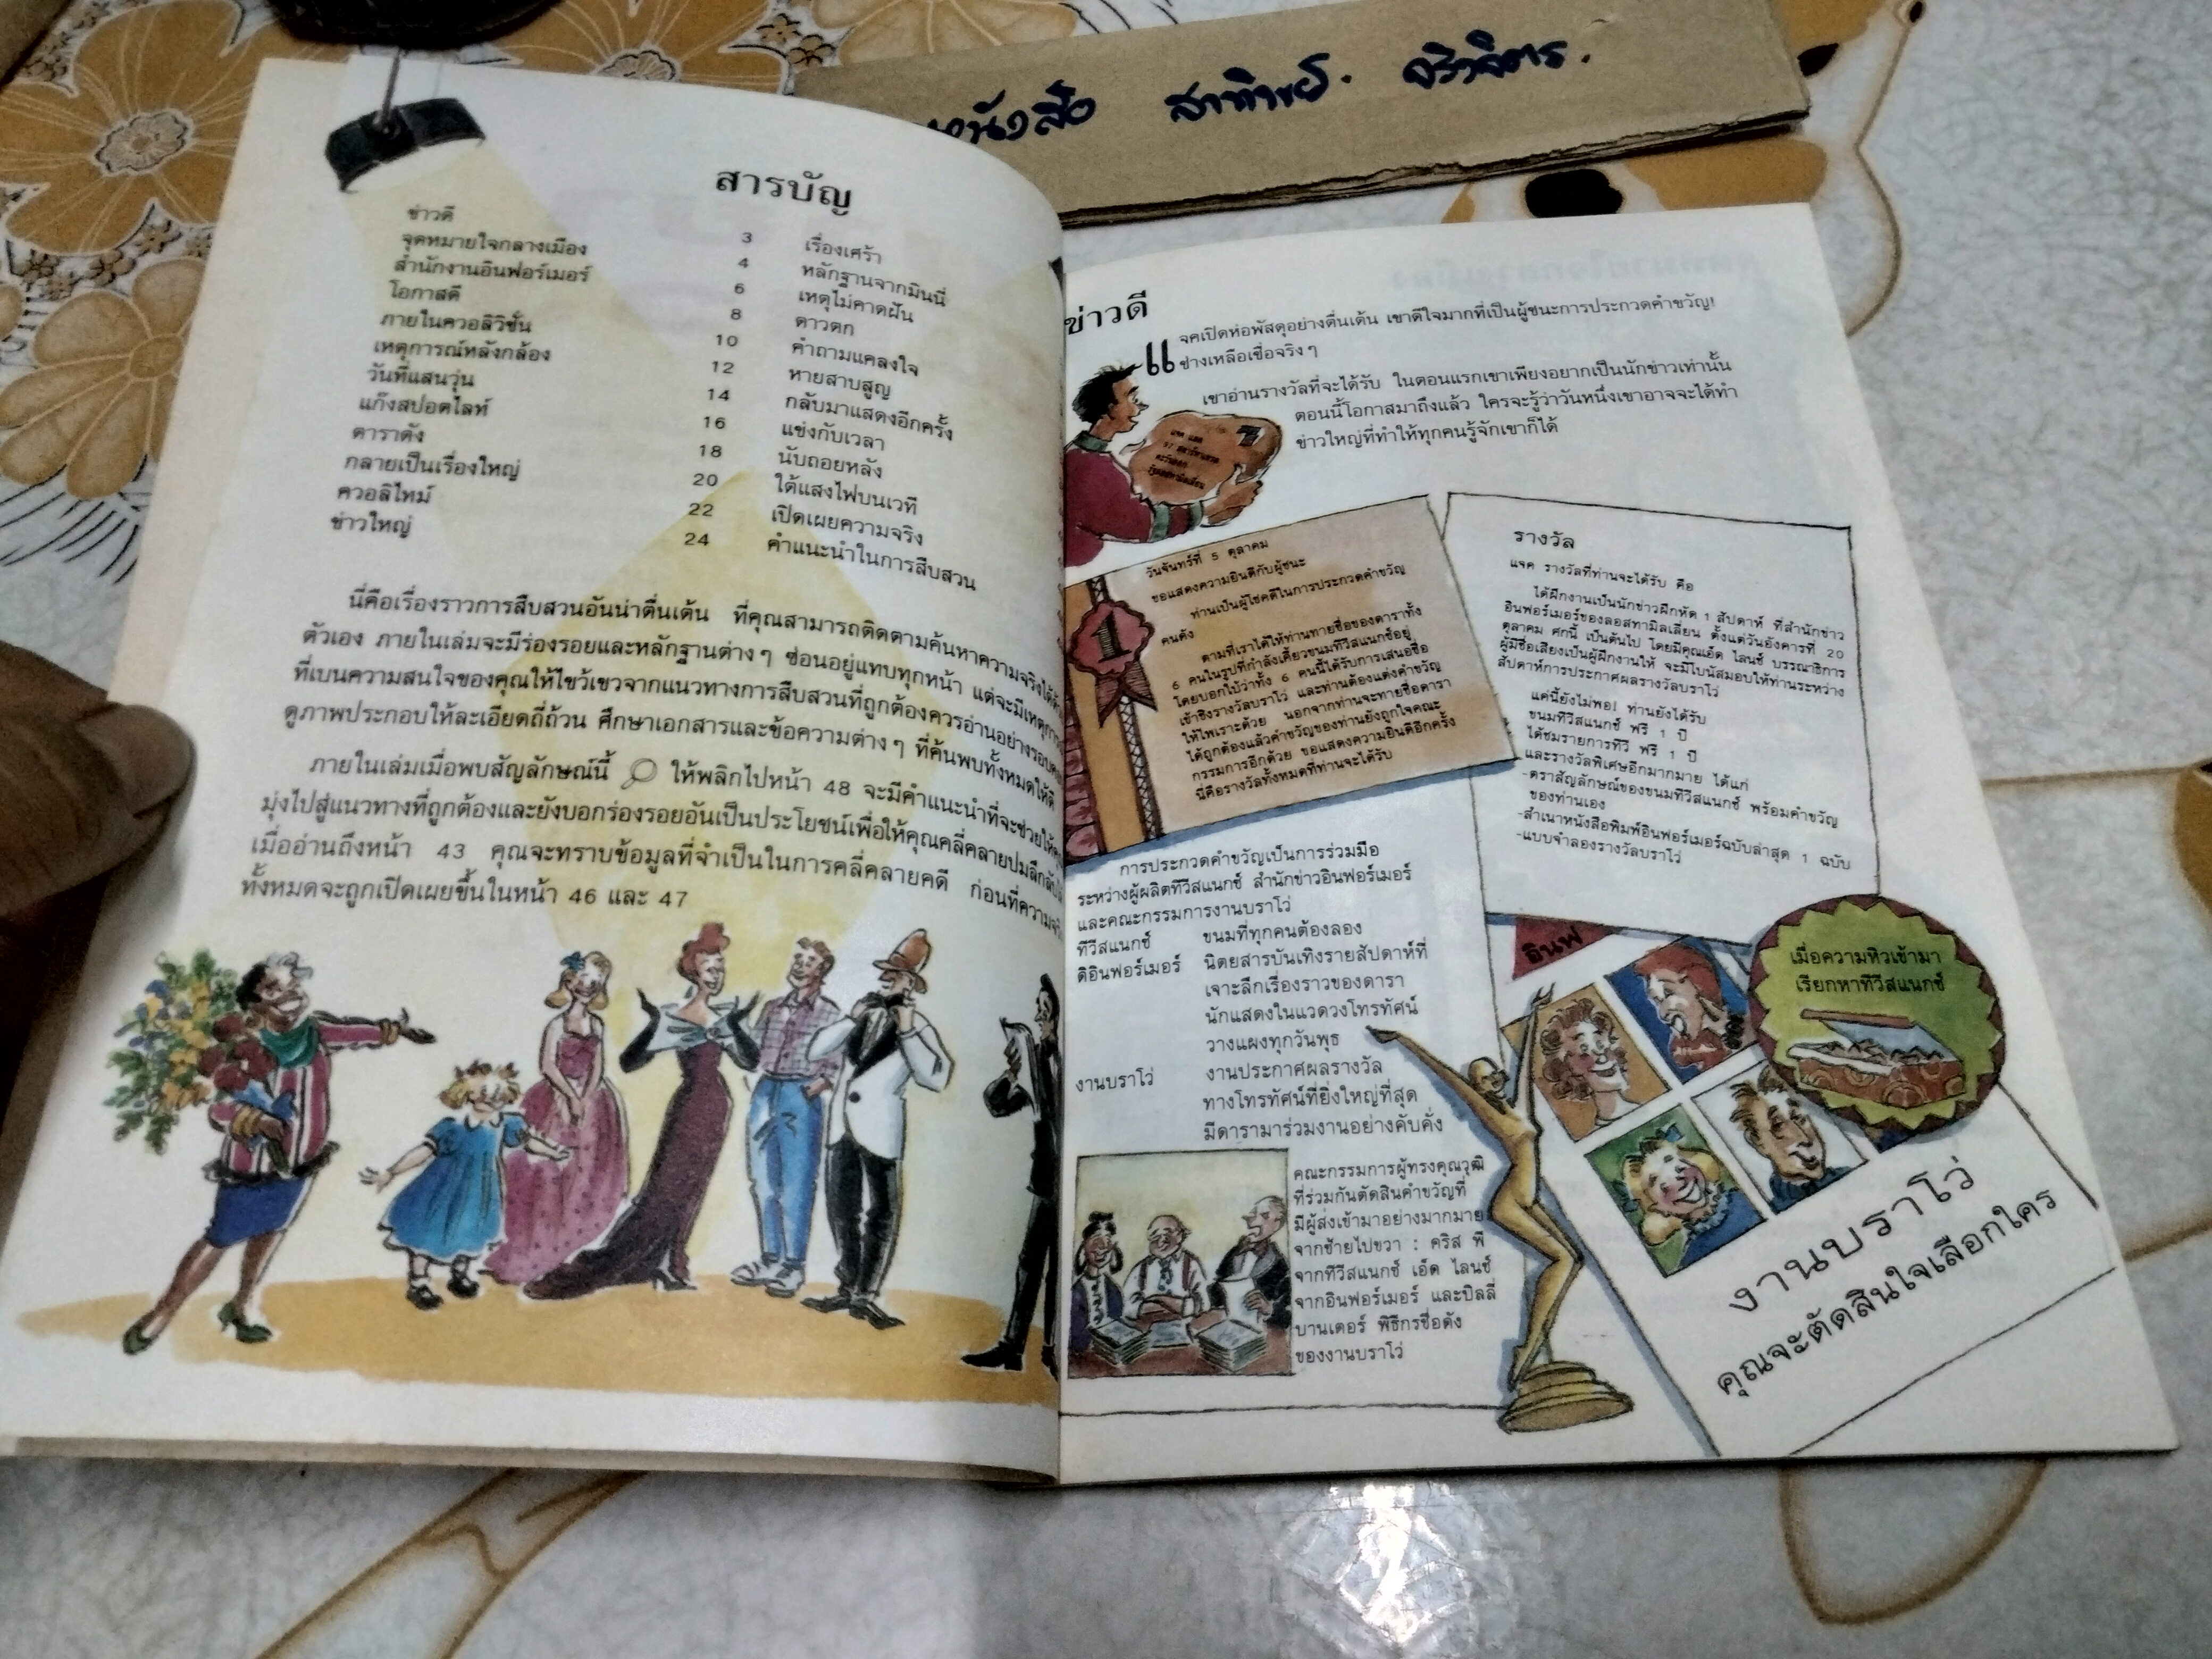 หนังสือ
สารบัญ
ข่าวดี 3
จุดหมายใจกลางเมือง 4
สำนักงานอินฟอร์เมอร์ 6
โอกาสดี 8
ภายในควอลิวิชั่น 10
เหตุการณ์หลังกล้อง 12
วันที่แสนวุ่น 14
แก๊งสปอตไลท์ 16
ดาราดัง 18
กลายเป็นเรื่องใหญ่ 20
ควอลิไทม์ 22
ข่าวใหญ่ 24
เรื่องเศร้า
หลักฐานจากมินนี่
เหตุไม่คาดฝัน
ดาวตก
คำถามแคลงใจ
หายสาบสูญ
กลับมาแสดงอีกครั้ง
แข่งกับเวลา
นับถอยหลัง
ใต้แสงไฟบนเวที
เปิดเผยความจริง
คำแนะนำในการสืบสวน
นี่คือเรื่องราวการสืบสวนอันน่าตื่นเต้น ที่คุณสามารถติดตามค้นหาความจริงได้ด้วย
ตัวเอง ภายในเล่มจะมีร่องรอยและหลักฐานต่างๆ ซ่อนอยู่แทบทุกหน้า แต่จะมีเหตุการณ์
ที่เบนความสนใจของคุณให้ไขว้เขวจากแนวทางการสืบสวนที่ถูกต้องควรอ่านอย่างรอบคอบ
ดูภาพประกอบให้ละเอียดถี่ถ้วน ศึกษาเอกสารและข้อความต่างๆ ที่ค้นพบทั้งหมดให้ดี
ภายในเล่มเมื่อพบสัญลักษณ์นี้ ให้พลิกไปหน้า 48 จะมีคำแนะนำที่จะช่วยให้คุณ
มุ่งไปสู่แนวทางที่ถูกต้องและยังบอกร่องรอยอันเป็นประโยชน์เพื่อให้คุณคลี่คลายปมลึกลับ
เมื่ออ่านถึงหน้า 43 คุณจะทราบข้อมูลที่จำเป็นในการคลี่คลายคดี ก่อนที่ความจริง
ทั้งหมดจะถูกเปิดเผยขึ้นในหน้า 46 และ 47
ข่าวดี
แจคเปิดห่อพัสดุอย่างตื่นเต้น เขาดีใจมากที่เป็นผู้ชนะการประกวดคำขวัญ!
ช่างเหลือเชื่อจริงๆ
เขาอ่านรางวัลที่จะได้รับ ในตอนแรกเขาเพียงอยากเป็นนักข่าวเท่านั้น
ตอนนี้โอกาสมาถึงแล้ว ใครจะรู้ว่าวันหนึ่งเขาอาจจะได้ทำ
ข่าวใหญ่ที่ทำให้ทุกคนรู้จักเขาก็ได้
1
วันจันทร์ที่ 5 ตุลาคม
ขอแสดงความยินดีกับผู้ชนะ
ท่านเป็นผู้โชคดีในการประกวดคำขวัญ
คนดัง
ตามที่เราได้ให้ท่านทายชื่อของดาราทั้ง
6 คนในรูปที่กำลังเคี้ยวขนมทีวีสแนกซ์อยู่
โดยบอกใบ้ว่าทั้ง 6 คนนี้ได้รับการเสนอชื่อ
เข้าชิงรางวัลบราโว่ และท่านต้องแต่งคำขวัญ
ให้ไพเราะด้วย นอกจากท่านจะทายชื่อดารา
ได้ถูกต้องแล้วคำขวัญของท่านยังถูกใจคณะ
กรรมการอีกด้วย ขอแสดงความยินดีอีกครั้ง
นี่คือรางวัลทั้งหมดที่ท่านจะได้รับ
รางวัล
แจค รางวัลที่ท่านจะได้รับ คือ
ได้ฝึกงานเป็นนักข่าวฝึกหัด 1 สัปดาห์ ที่สำนักข่าว
อินฟอร์เมอร์ของลอสทามิลเลี่ยน ตั้งแต่วันอังคารที่ 20
ตุลาคม ศกนี้ เป็นต้นไป โดยมีคุณเอ็ด ไลนซ์ บรรณาธิการ
ผู้มีชื่อเสียงเป็นผู้ฝึกงานให้ จะมีโบนัสมอบให้ท่านระหว่าง
สัปดาห์การประกาศผลรางวัลบราโว่
แค่นี้ยังไม่พอ! ท่านยังได้รับ
ขนมทีวีสแนกซ์ ฟรี 1 ปี
ได้ชมรายการทีวี ฟรี 1 ปี
และรางวัลพิเศษอีกมากมาย ได้แก่
-ตราสัญลักษณ์ของขนมทีวีสแนกซ์ พร้อมคำขวัญ
ของท่านเอง
-สำเนาหนังสือพิมพ์อินฟอร์เมอร์ฉบับล่าสุด 1 ฉบับ
-แบบจำลองรางวัลบราโว่
การประกวดคำขวัญเป็นการร่วมมือ
ระหว่างผู้ผลิตทีวีสแนกซ์ สำนักข่าวอินฟอร์เมอร์
และคณะกรรมการงานบราโว่
ทีวีสแนกซ์ ขนมที่ทุกคนต้องลอง
ดิอินฟอร์เมอร์ นิตยสารบันเทิงรายสัปดาห์ที่
เจาะลึกเรื่องราวของดารา
นักแสดงในแวดวงโทรทัศน์
วางแผงทุกวันพุธ
งานบราโว่ งานประกาศผลรางวัล
ทางโทรทัศน์ที่ยิ่งใหญ่ที่สุด
มีดารามาร่วมงานอย่างคับคั่ง
คณะกรรมการผู้ทรงคุณวุฒิ
ที่ร่วมกันตัดสินคำขวัญที่
มีผู้ส่งเข้ามาอย่างมากมาย
จากซ้ายไปขวา : คริส พี
จากทีวีสแนกซ์ เอ็ด ไลนซ์
จากอินฟอร์เมอร์ และบิลลี่
บานเตอร์ พิธีกรชื่อดัง
ของงานบราโว่
เมื่อความหิวเข้ามา
เรียกหาทีวีสแนกซ์
งานบราโว่
คุณจะตัดสินใจเลือกใคร